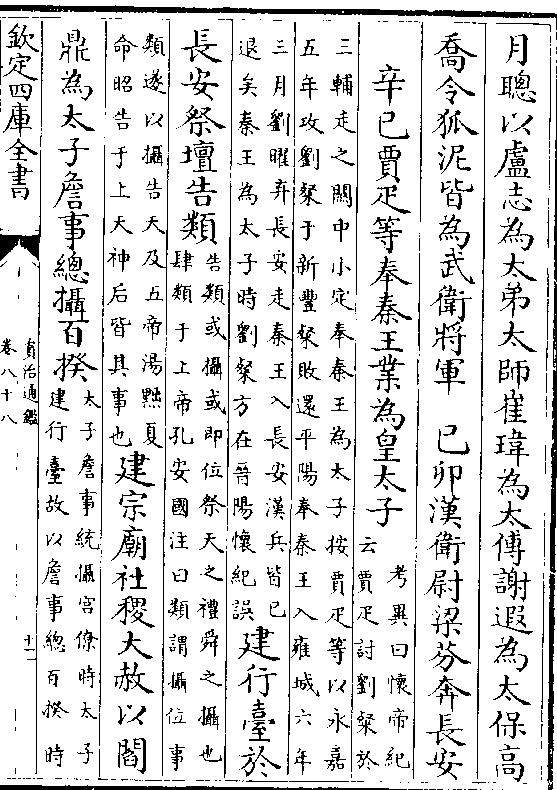 月聰以盧志為太弟太師崔瑋為太傅謝遐為太保高
喬令狐泥皆為武衛將軍　己卯漢衛尉梁芬奔長安
辛巳賈疋等奉秦王業為皇太子考異曰懷帝紀云賈疋討劉粲於
三輔走之關中小定奉秦王為太子按賈疋等以永嘉
五年攻劉粲于新豐粲敗還平陽奉秦王入雍城六年
三月劉曜弃長安走秦王入長安漢兵皆已
退矣秦王為太子時劉粲方在晉陽懷紀誤建行臺於
長安祭壇告類告類或攝或即位祭天之禮舜之攝也
肆類于上帝孔安國注曰類謂攝位事
類遂以攝告天及五帝湯黜夏
命昭告于上天神后皆其事也建宗廟社稷大赦以閻
鼎為太子詹事總攝百揆太子詹事統攝宮僚時太子
建行臺故以詹事總百揆時
欽定四庫全書
資治通鑑
卷八十八
十一